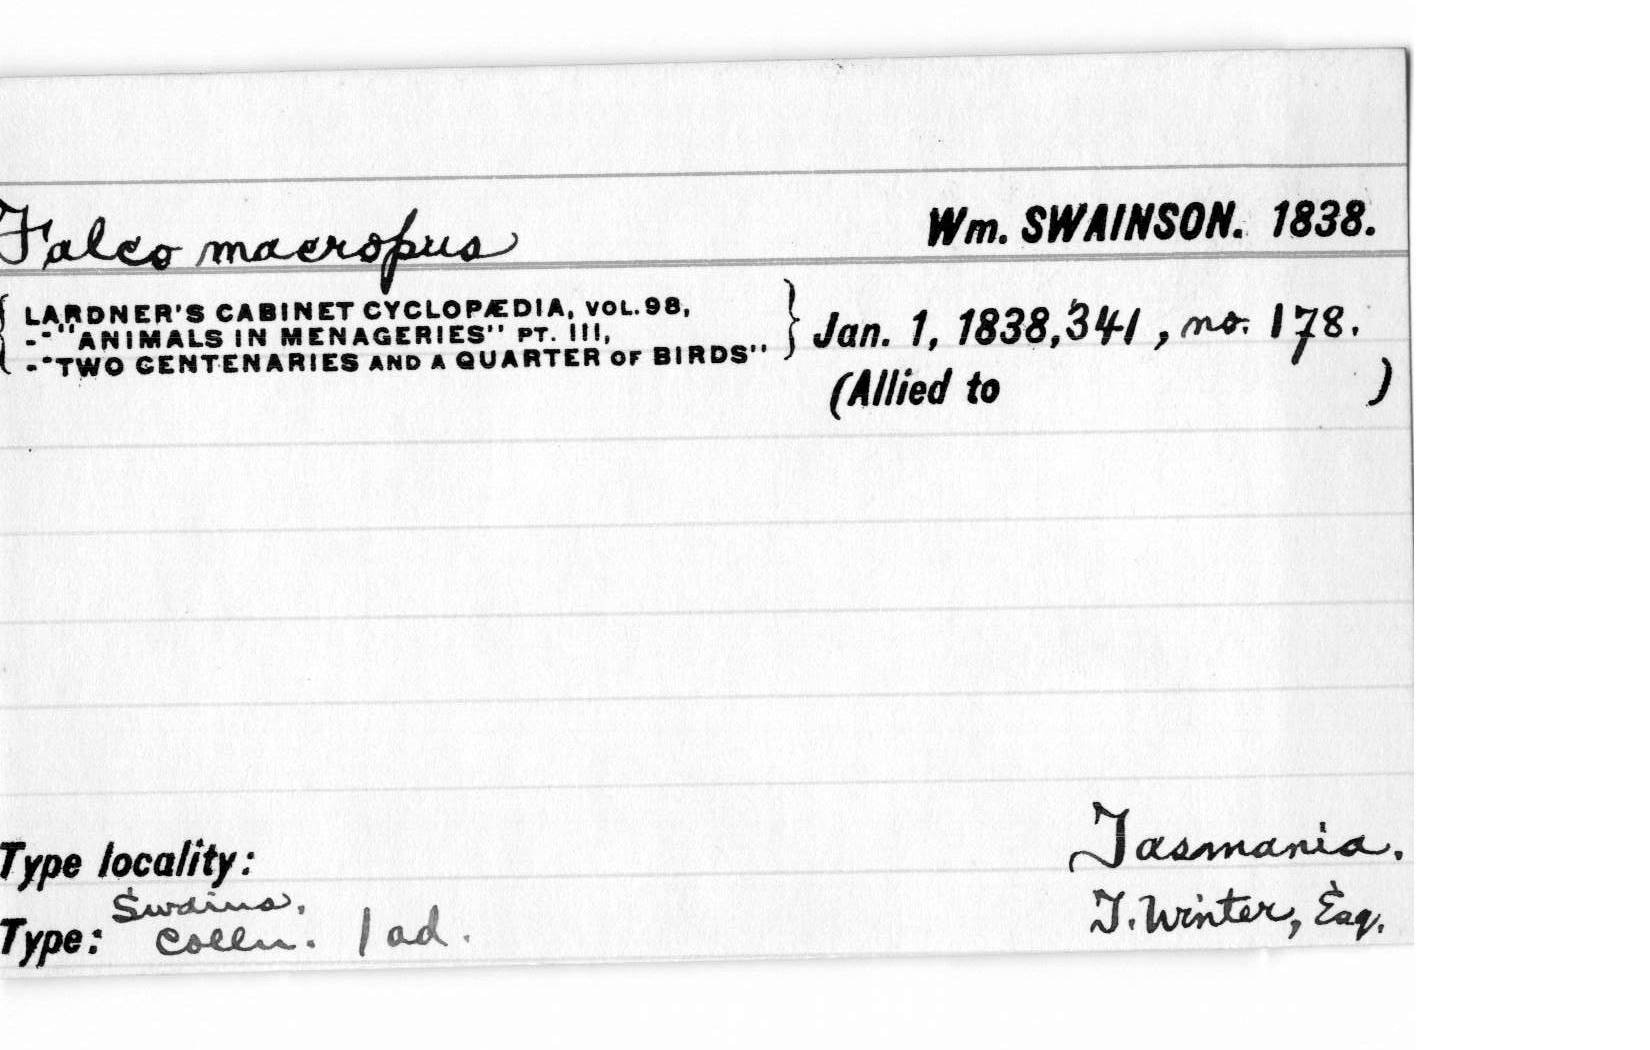 Falco macropus Wm. SWAINSON. 1838.
{ LARDNER'S CABINET CYCLOPÆDIA, VOL.98,
-"ANIMALS IN MENAGERIES" PT. III,
-"TWO CENTENARIES AND A QUARTER OF BIRDS" } Jan. 1, 1838, 341, no. 178.
(Allied to )
Type locality: Tasmania.
Swains.
Type: Colln. 1 ad. T. Winter, Esq.